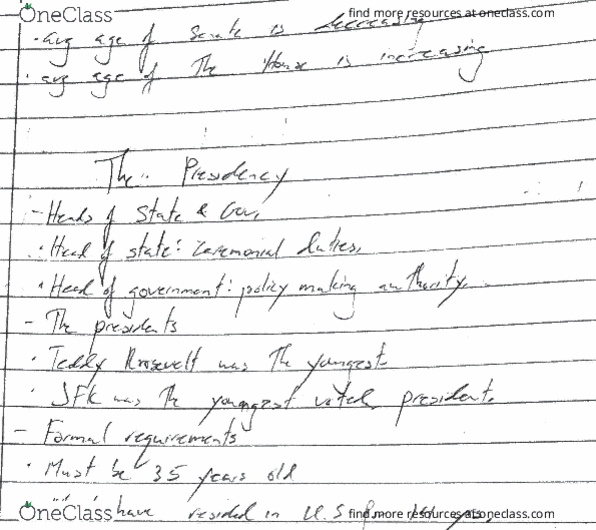 OneClass find more resources at oneclass.com
· avg age of Senate is decreasing
· avg age of The House is increasing
The Presidency
- Heads of State & Gov.
· Head of state: ceremonial duties.
· Head of government: policy making authority.
- The presidents
· Teddy Roosevelt was The youngest
· JFK was The youngest voted president.
- Formal requirements
· Must be 35 years old
" " have resided in U.S for 14 yrs.
OneClass find more resources at oneclass.com